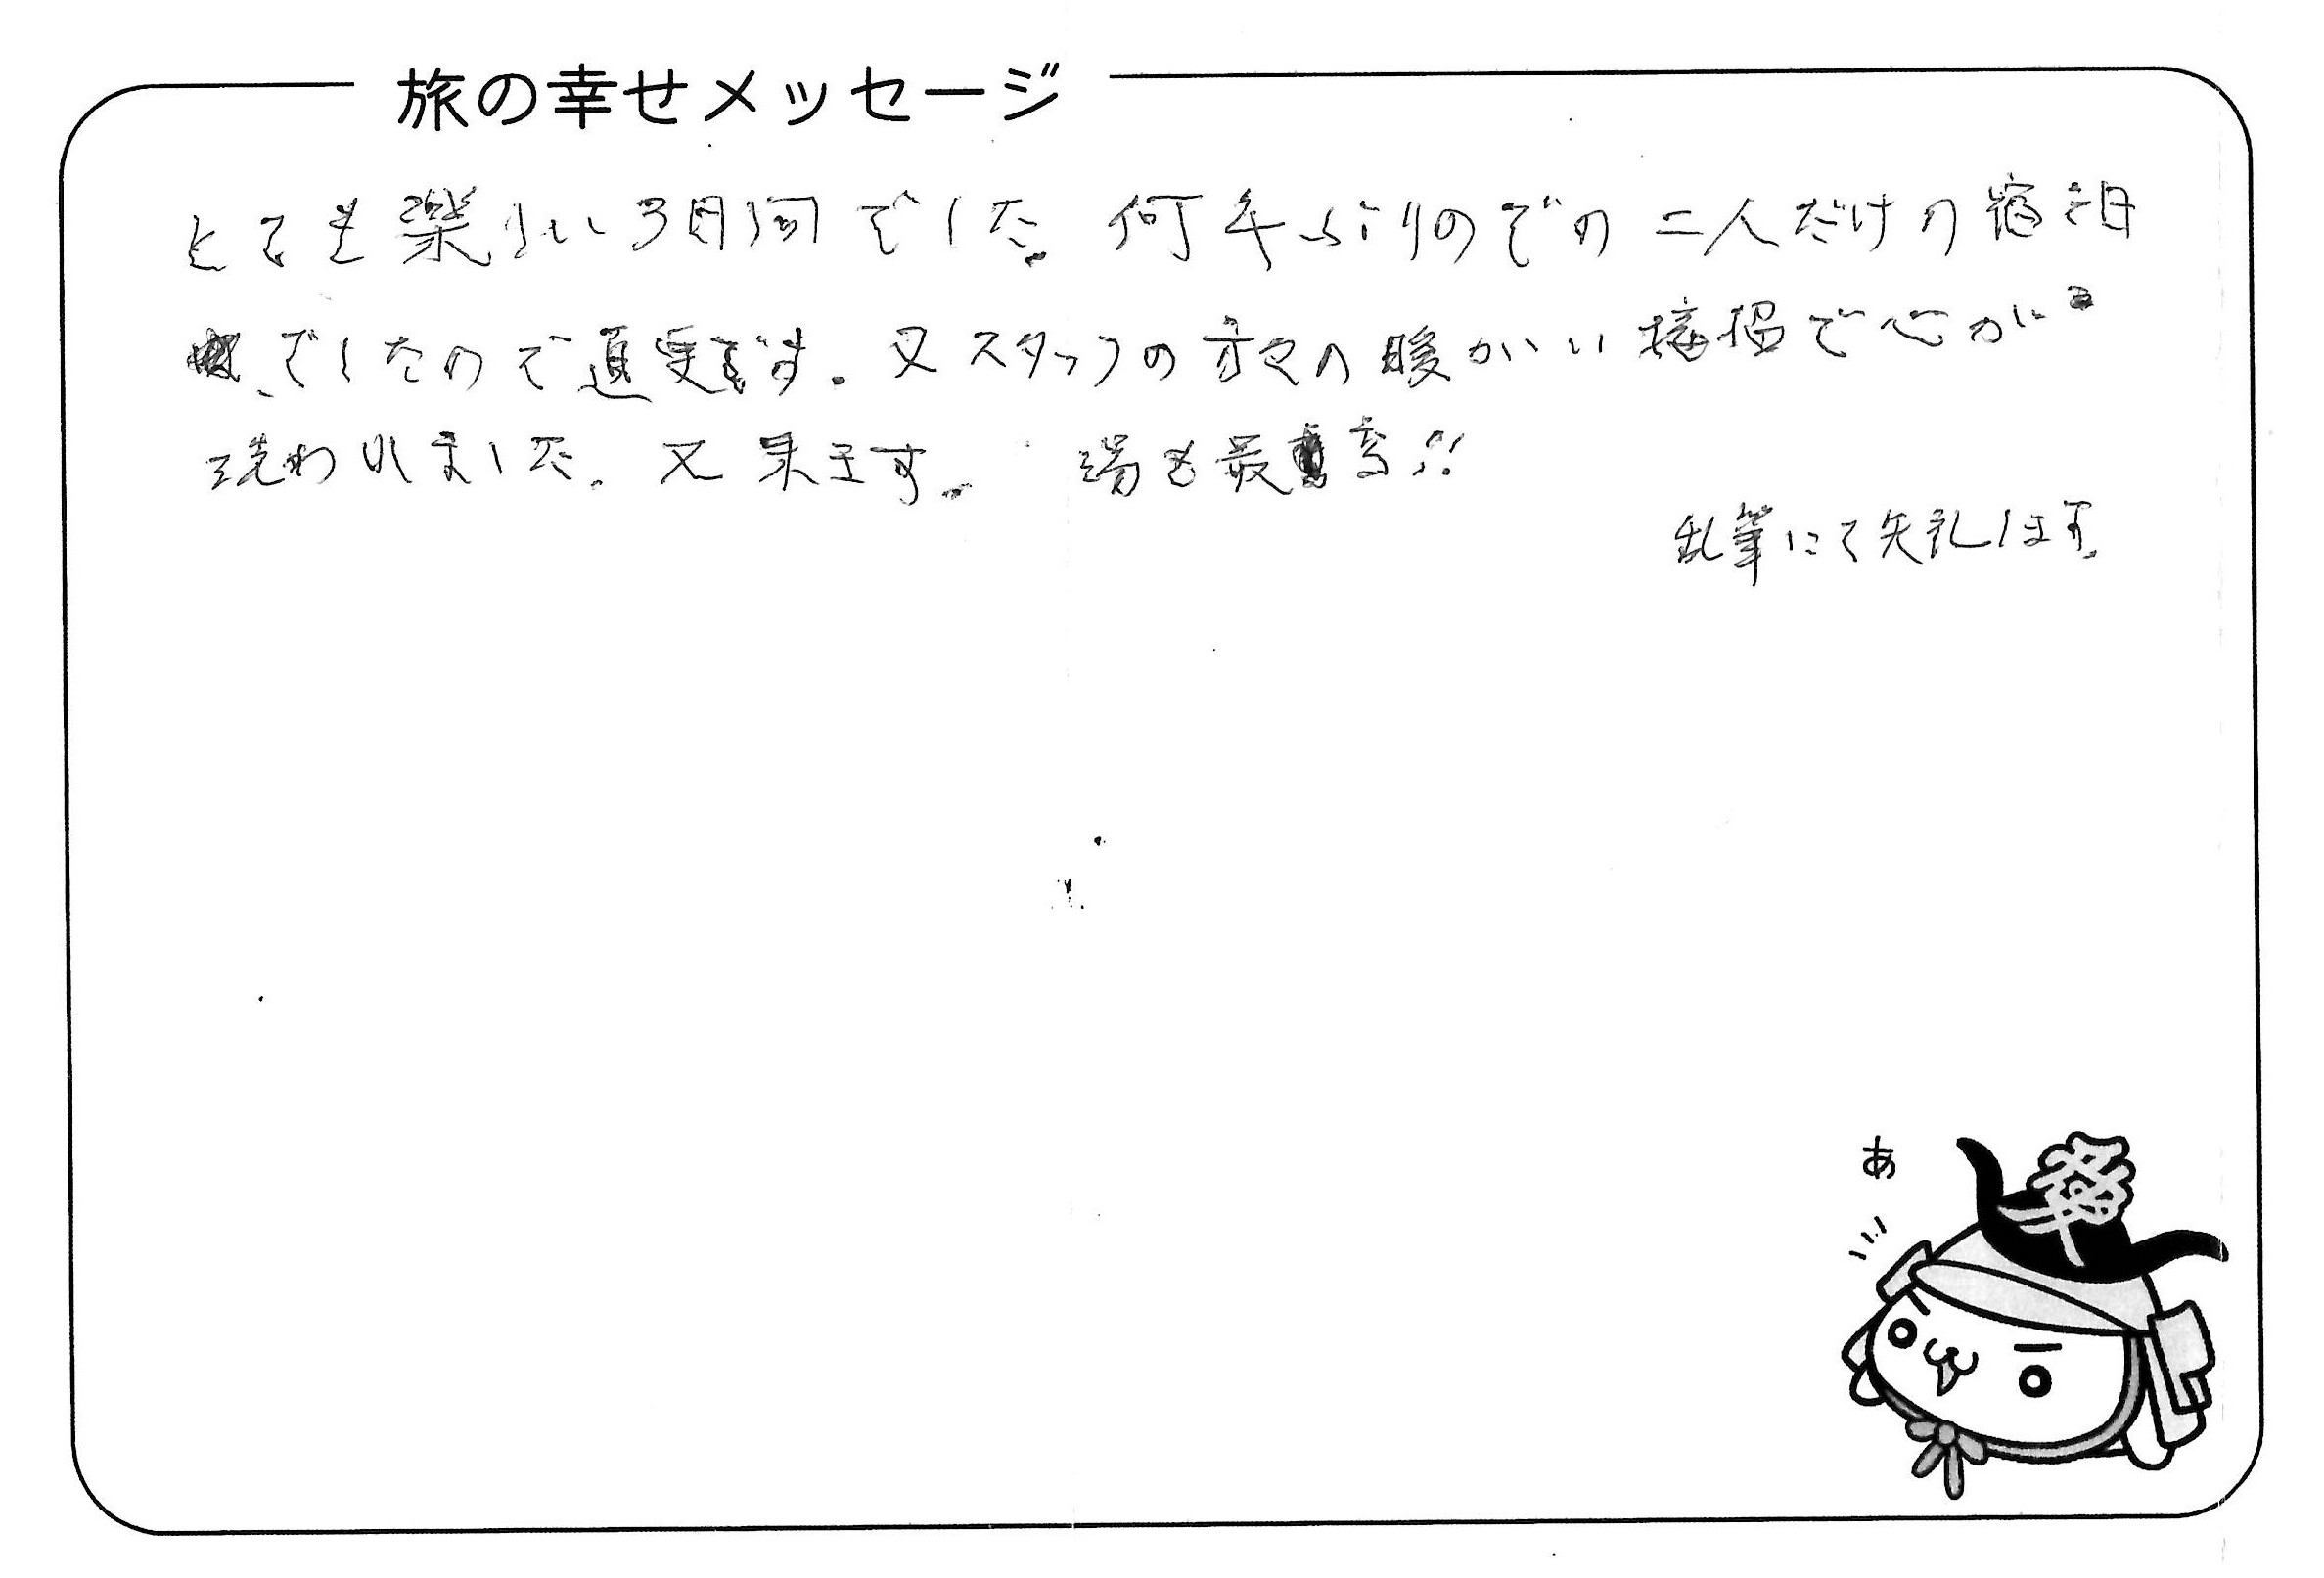 旅の幸せメッセージ
とても楽しい3日間でした。何年ぶりのでの二人だけの宿泊
でしたので適度です。又スタッフの方々の暖かい接遇で心が
洗われました。又来ます。 湯も最高!!
乱筆にて失礼します。
あ
幸